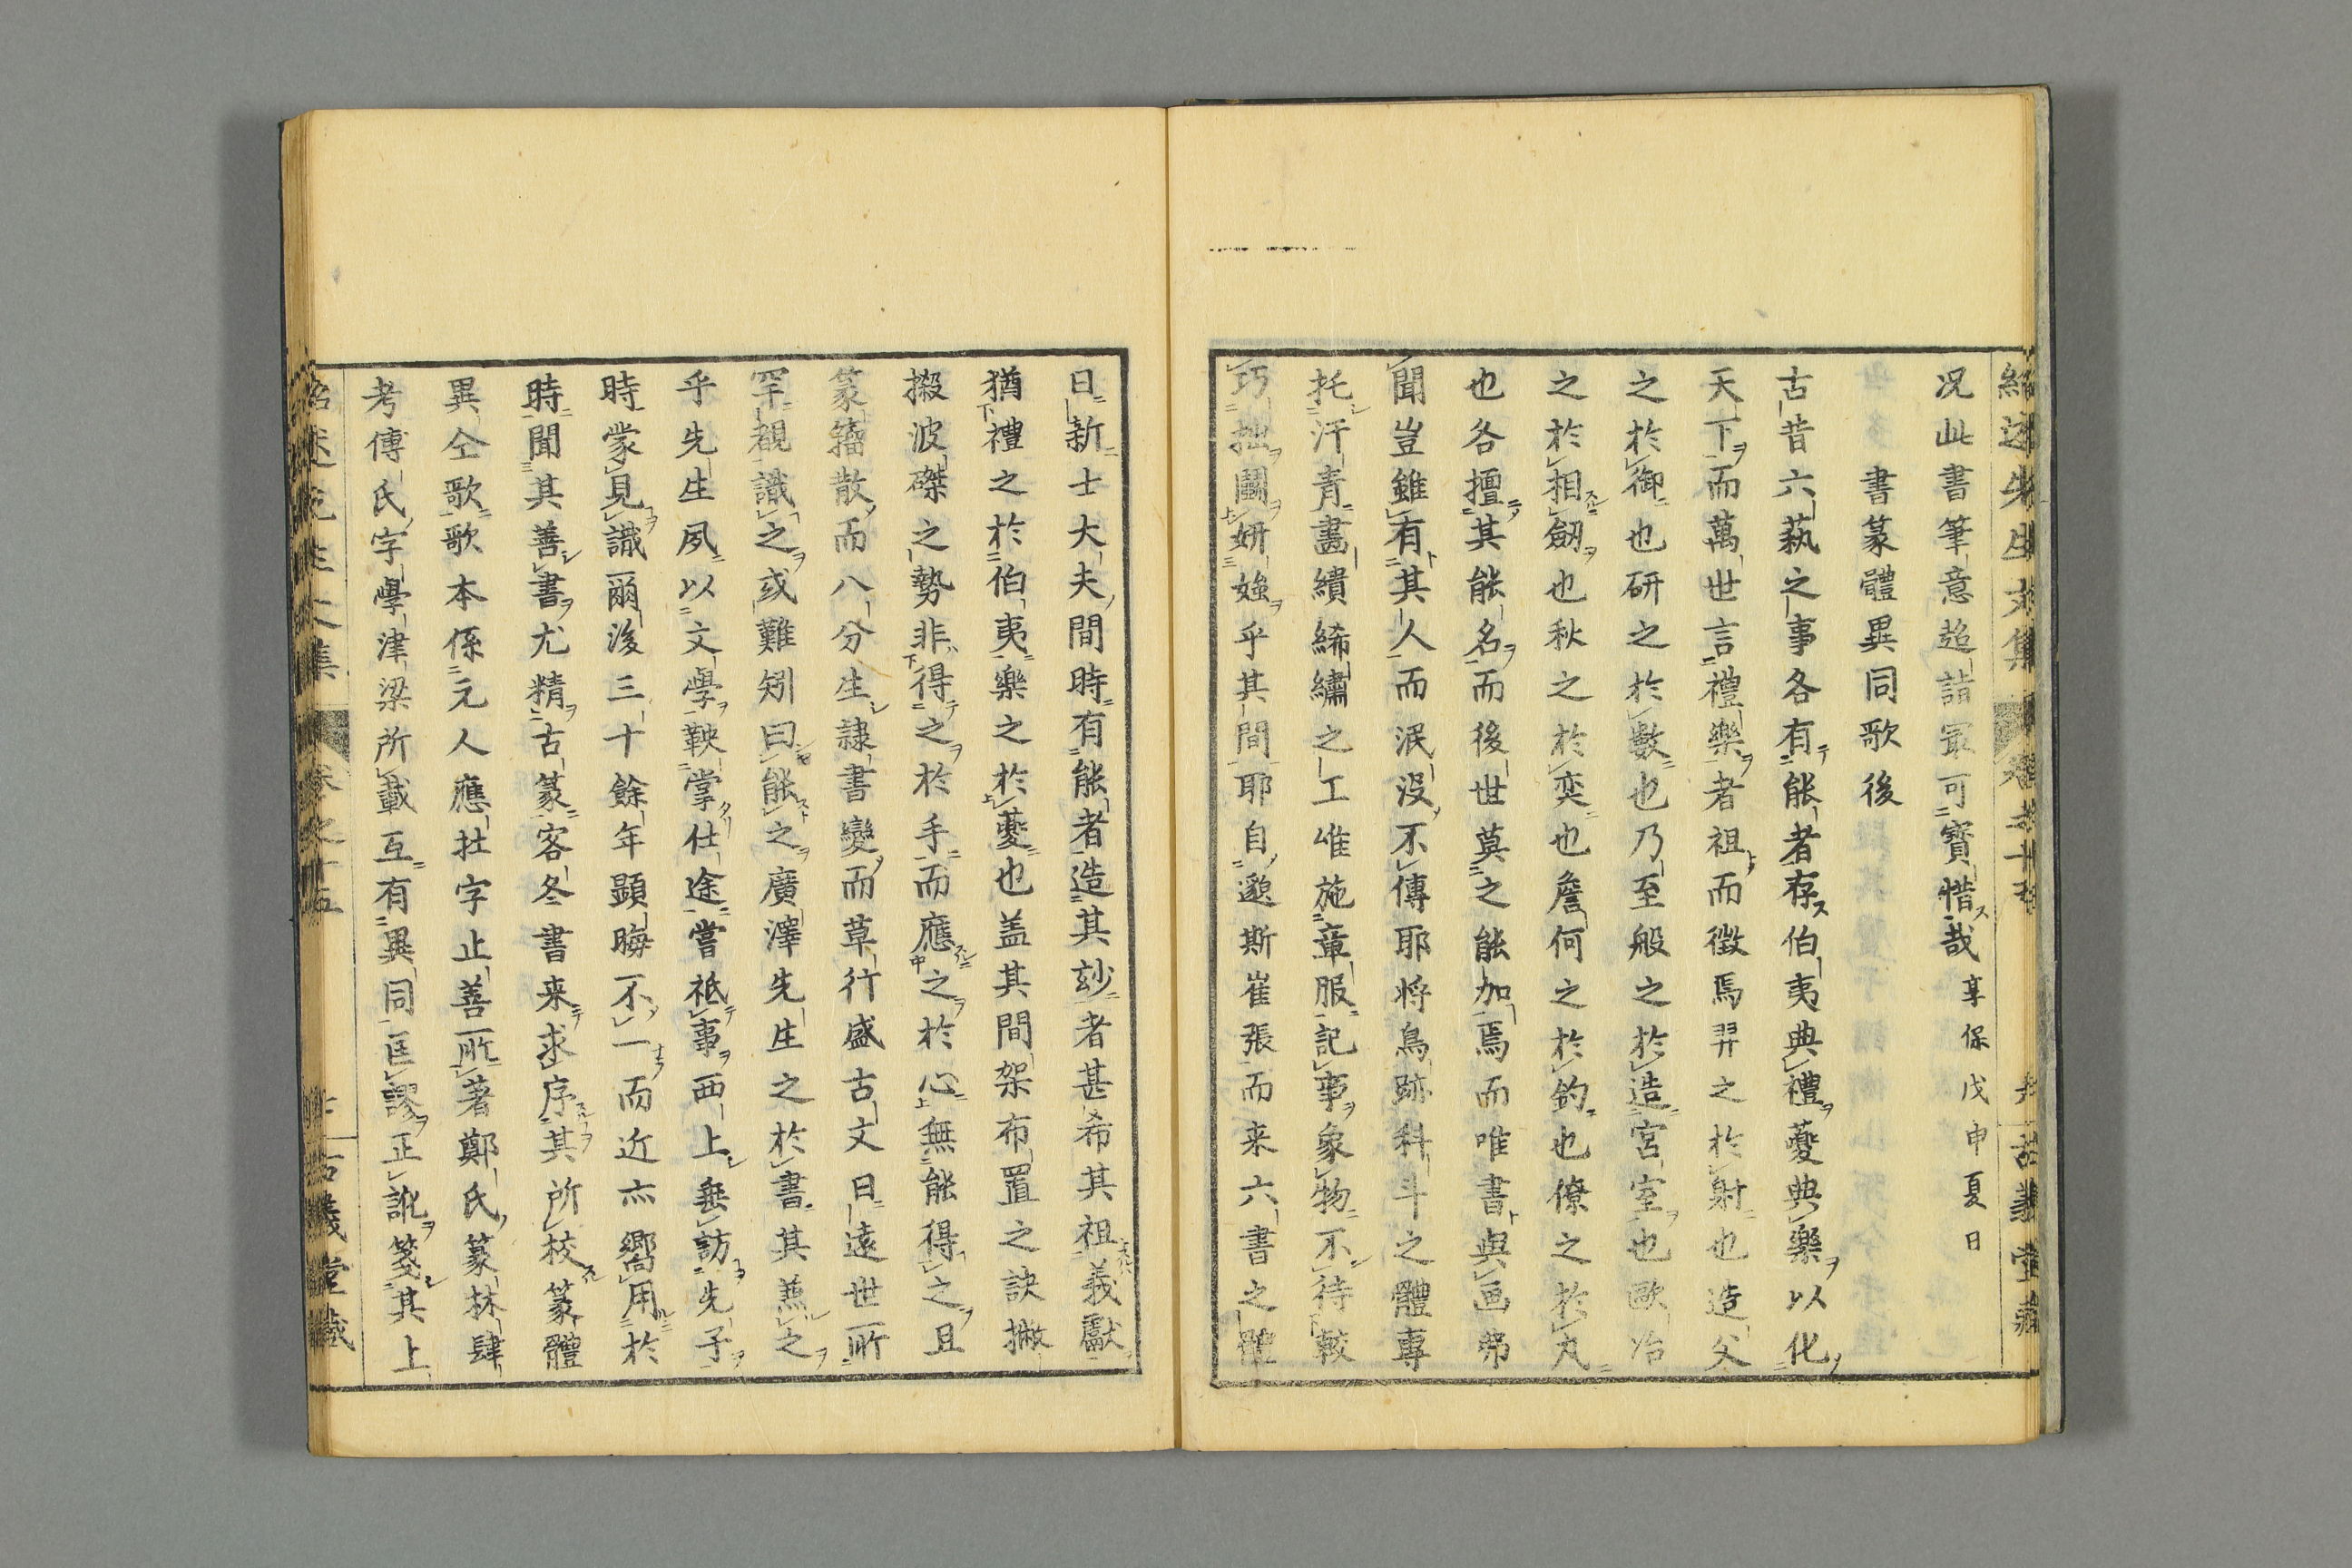 况此書筆意超詣冣可寶惜哉享保戊申夏日
書篆體異同歌後
古昔六蓺之事各有能者存伯夷典禮夔典樂以化
天下而萬世言禮樂者祖而徴焉羿之於射也造父
之於御也研之於數也乃至般之於造宮室也歐冶
之於相劒也秋之於奕也詹何之於釣也僚之於丸
也各擅其能名而後世莫之能加焉而唯書與画弗
聞豈雖有其人而泯没不傳耶將鳥跡科斗之體專
托汗青畵繢絺繡之工唯施章服記事象物不待較
巧拙鬭妍媸乎其間耶自邈斯崔張而来六書之體
日新士大夫間時有能者造其玅者甚希其祖義獻
猶禮之於伯夷樂之於夔也盖其間架布置之訣撇
掇波磔之勢非得之於手而應之於心無能得之且
篆籀散而八分生隷書變而草行盛古文日遠世所
罕覩識之或難矧曰能之廣澤先生之於書其蕉之
乎先生夙以文學鞅掌仕途嘗祗事西上垂訪先子
時蒙見識爾後三十餘年顕晦不一而近亦嚮用於
時聞其善書尤精古篆客冬書来求序其所校篆體
異仝歌歌本係元人應在字止善所著鄭氏篆林肆
考傅氏字學津梁所載互有異同匡謬正訛箋其上